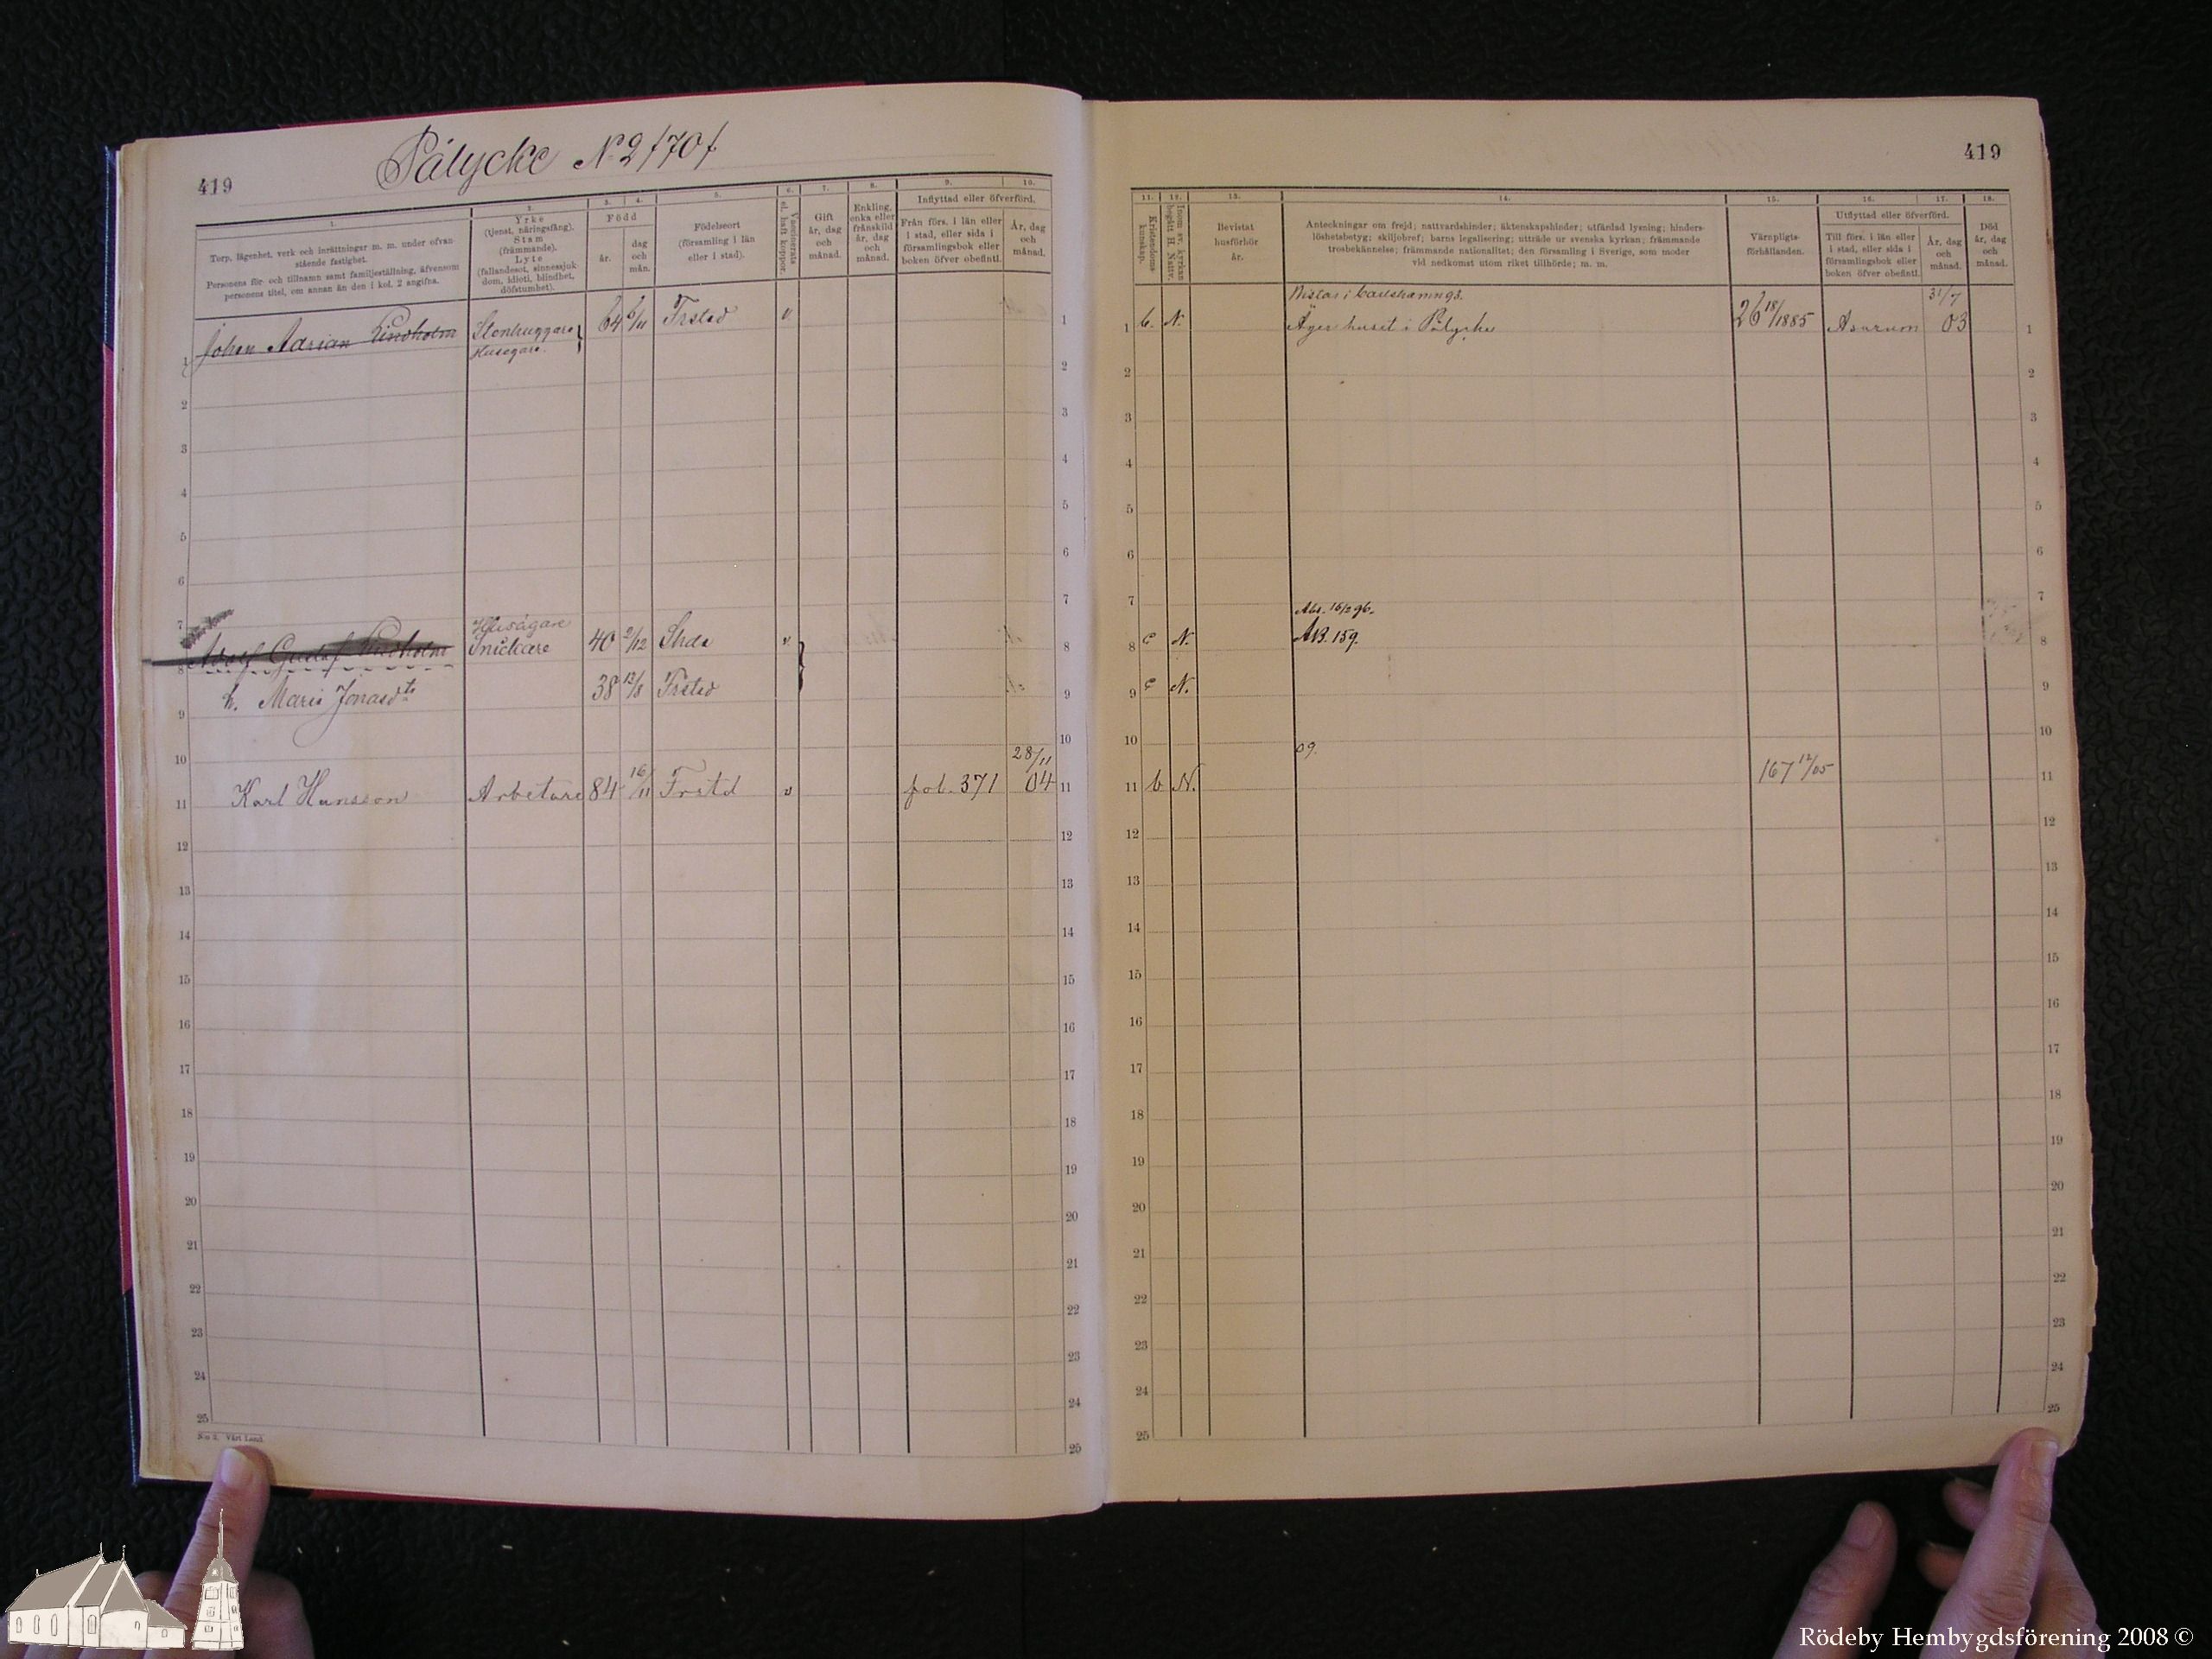 Pålycke No 2 /70/
419
1.
Torp, lägenhet, verk och inrättningar m. m. under ofvan-
stående fastighet.
Personens för- och tillnamn samt familjeställning, äfvensom
personens titel, om annan än den i kol. 2 angifna.
2.
Yrke
(tjenst, näringsfång).
Stam
(främmande).
Lyte
(fallandesot, sinnessjuk-
dom, idioti, blindhet,
döfstumhet).
3. 4.
Född
år.
dag
och
mån.
5.
Födelseort
(församling i län
eller i stad).
6.
Vaccinerats
el. haft koppor.
7.
Gift
år, dag
och
månad.
8.
Enkling,
enka eller
frånskild
år, dag
och
månad.
9. 10.
Inflyttad eller öfverförd.
Från förs. i län eller
i stad, eller sida i
församlingsbok eller
boken öfver obefintl.
År, dag
och
månad.
1 Johan Adrian Lindholm Stenhuggare 64 6/11 Frsted v 1
Husegare.
2 2
3 3
4 4
5 5
6 6
7 7
Husägare
8 Adolf Gustaf Lindholm Snickare 40 2/12 v 8
9 h. Maria Jonasdtr 38 13/8 Frsted 9
10 10
28/11
11 Karl Hansson Arbetare 84 16/11 Frstd v fol. 371 04 11
12 12
13 13
14 14
15 15
16 16
17 17
18 18
19 19
20 20
21 21
22 22
23 23
24 24
25 25
N:o 2. Vårt Land.
419
11.
Kristendoms-
kunskap.
12.
Inom sv. kyrkan
begått H. Nattv.
13.
Bevistat
husförhör
år.
14.
Anteckningar om frejd; nattvardshinder; äktenskapshinder; utfärdad lysning; hinders-
löshetsbetyg; skiljobref; barns legalisering; utträde ur svenska kyrkan; främmande
trosbekännelse; främmande nationalitet; den församling i Sverige, som moder
vid nedkomst utom riket tillhörde; m. m.
15.
Värnpligts-
förhållanden.
16. 17.
Utflyttad eller öfverförd.
Till förs. i län eller
i stad, eller sida i
församlingsbok eller
boken öfver obefintl.
År, dag
och
månad.
18.
Död
år, dag
och
månad.
Vistas i Carlshamn 93. 31/7
1 b. N. Äger huset i Pålycke 26 18/1885 Asarum 03 1
2 2
3 3
4 4
5 5
6 6
7 Abs. 16/2 96. 7
8 c N. AB. 159. 8
9 c N. 9
10 09. 10
11 b N. 167 12/05 11
12 12
13 13
14 14
15 15
16 16
17 17
18 18
19 19
20 20
21 21
22 22
23 23
24 24
25 25
Rödeby Hembygdsförening 2008 ©